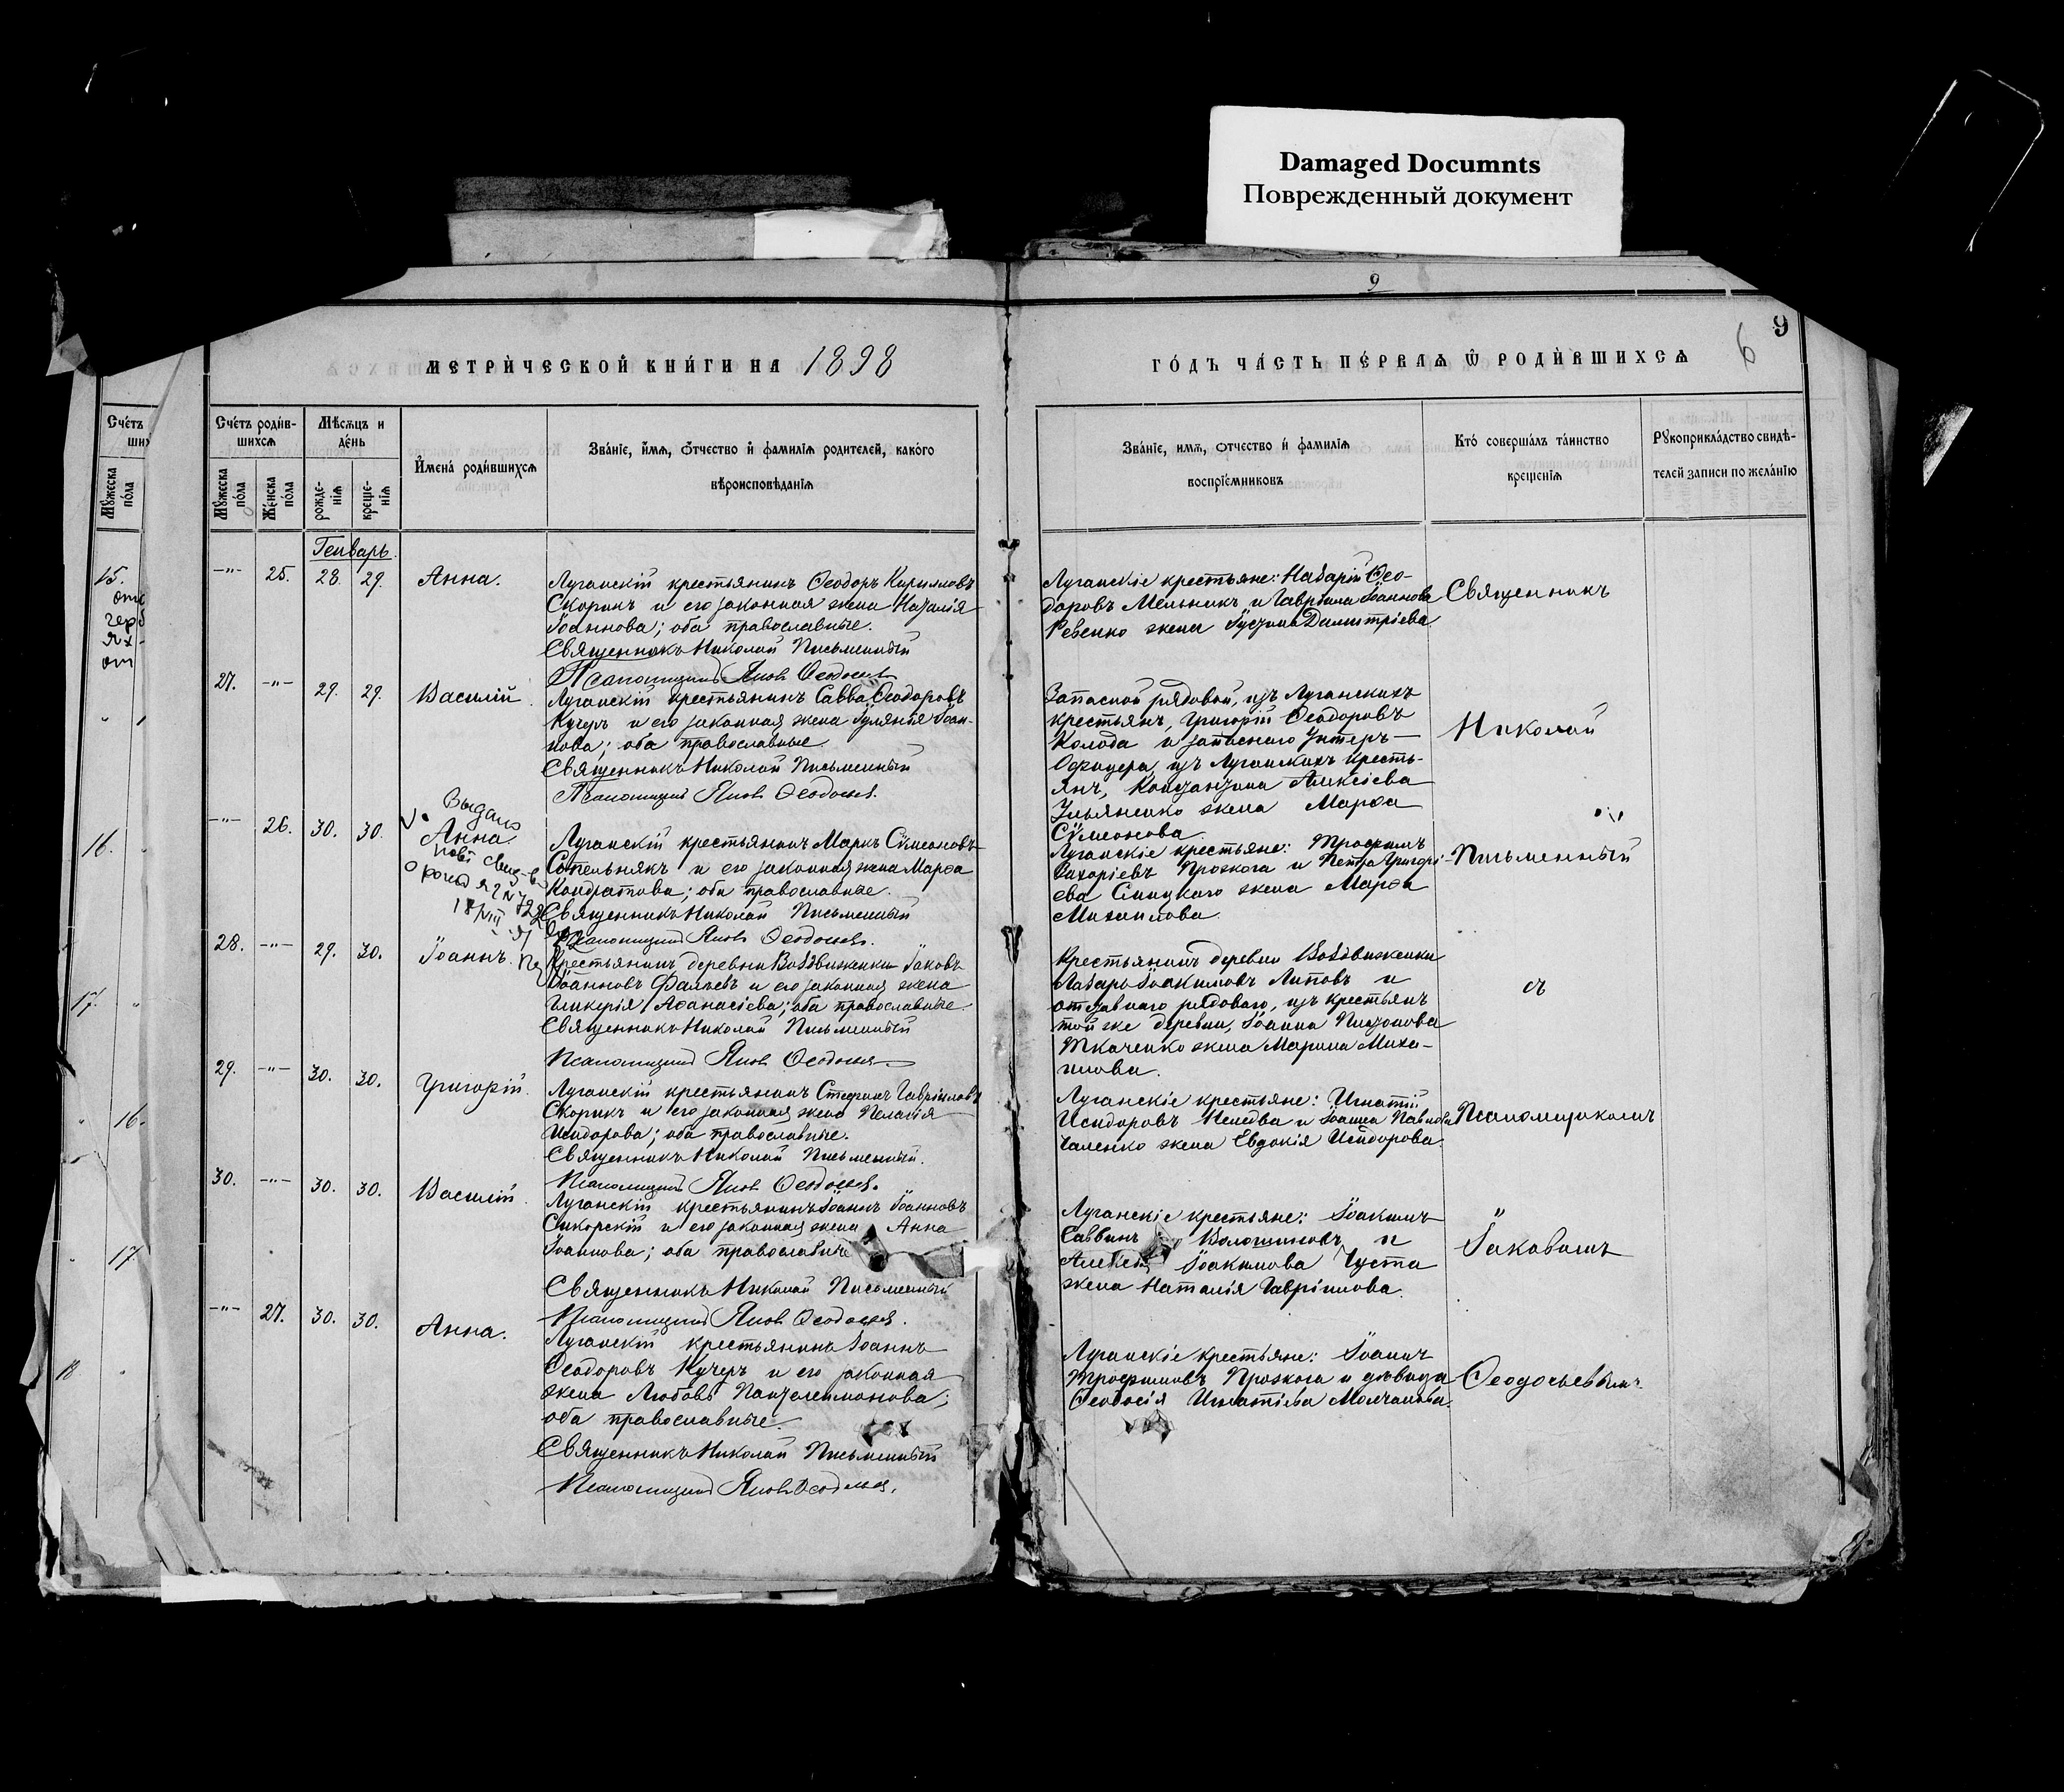 Damaged Documnts
Поврежденный документ
9
9
6
МЕТРИ́ЧЕСКОЙ КНИ́ГИ НА 1898
ГО́ДЪ ЧА́СТЬ ПЕ́РВАѦ Ѡ РОДИ́ВШИХСѦ
Сче́тъ
ших
Мꙋжеска по́ла
15.
16.
17.
16.
17.
18
Сче́тъ роди́в-
шихсѧ
Мꙋжеска по́ла
Же́нска по́ла
Мѣсѧцъ и
де́нь
рожде-
нїѧ
креще-
нїѧ
Имена́ роди́вшихсѧ
Зва́нїе, и́мѧ, ѻ́тчество и фамилїѧ родителей, како́го
вѣроисповѣ́данїѧ
Зва́нїе, имѧ, ѻтчество и́ фамилїѧ
воспрїе́мниковъ
Кто́ соверша́лъ та́инство
креще́нїѧ
Рꙋкоприкла́дство свидѣ́-
телей записи по жела́нїю
Генварь.
-"- 25. 28. 29. Анна.
Луганскій крестьянинъ Ѳеодоръ Кирилловъ
Скорикъ и его законная жена Наталія
Іоаннова; оба православные.
Священникъ Николай Письменный
Псаломщикъ Яковъ Ѳеодосьев
Луганскіе крестьяне: Назарій Ѳео-
доровъ Мельникъ и Гавріила Іоаннова
Ревенко жена Іустина Димитріева
27. -"- 29. 29. Василій.
Луганскій крестьянинъ Савва Ѳеодоровъ
Кучеръ и его законная жена Іуліанія Іоан-
нова; оба православные
Священникъ Николай Письменный
Псаломщикъ Яковъ Ѳеодосьев.
Запасной рядовой, изъ Луганскихъ
крестьянъ, Григорій Ѳеодоровъ
Колода и запаснаго Унтеръ-
Офицера, изъ Луганскихъ кресть-
янъ, Алексіева
Ульяненко жена Марѳа
Сѵмеонова.
-"- 26. 30. 30. Анна.
Выдано
нові свид-
18/VIII
Луганскій крестьянинъ Маркъ Сѵмеоновъ
Сотельнякъ и его законная жена Марѳа
Кондратова; оба православные.
Священникъ Николай Письменный
Псаломщикъ Яковъ Ѳеодосьев.
Луганскіе крестьяне: Трофимъ
Захаріевъ Проскога и Петра Григорі-
ева Синицкаго жена Марѳа
Михаилова.
28. -"- 29. 30. Іоаннъ.
Крестьянинъ деревни Воздвиженки Іаковъ
Іоанновъ и его законная жена
Гликерія Аѳанасіева; оба православные.
Священникъ Николай Письменный
Псаломщикъ Яковъ Ѳеодосьев
Крестьянинъ деревни Воздвиженки
Лазарь Іоакимовъ Липовъ и
отставнаго рядоваго, изъ крестьянъ
той же деревни, Іоанна Платонова
Ткаченко жена Марина Миха-
илова.
29. -"- 30. 30. Григорій.
Луганскій крестьянинъ Стефанъ Гавріиловъ
Скорикъ и его законная жена Пелагія
Исидорова; оба православные.
Священникъ Николай Письменный.
Псаломщикъ Яковъ Ѳеодосьев.
Луганскіе крестьяне: Игнатій
Исидоровъ Непедва и Іоанна Павлова
Чаленко жена Евдокія Исидорова.
30. -"- 30. 30. Василій.
Луганскій крестьянинъ Іоаннъ Іоанновъ
Сикорскій и его законная жена Анна
Іоаннова; оба православные
Священникъ Николай Письменный
Псаломщикъ Яковъ Ѳеодосьев.
Луганскіе крестьяне: Іоакимъ
Саввинъ Волошиновъ и
Алексія Іоакимова Чуста
жена Наталія Гавріилова.
-"- 27. 30. 30. Анна.
Луганскій крестьянинъ Іоаннъ
Ѳеодоровъ Кучеръ и его законная
жена Любовь Пантелеимонова;
оба православные.
Священникъ Николай Письменный
Псаломщикъ Яковъ Ѳеодосьев.
Луганскіе крестьяне: Іоаннъ
Трофимовъ Проскога и дѣвица
Ѳеодосія Игнатіева Молчанова.
Священникъ
Николай
Письменный
съ
Псаломщикомъ
Іаковомъ
Ѳеодосьевымъ